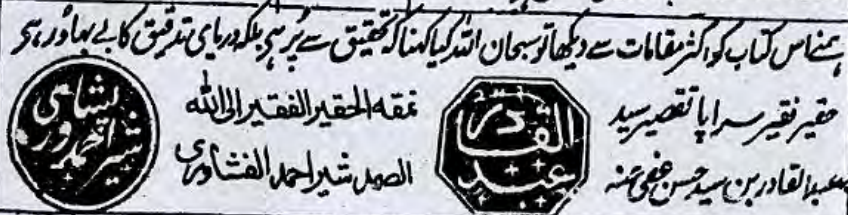 ہمنے اس کتاب کو اکثر مقامات سے دیکھا تو سبحان اللہ کیا کہنا کہ تحقیق سے پُر ہی بلکہ دریای تدقیق کا بے بہا دُر ہی
حقیر فقیر سراپا تقصیر سید
عبدالقادر بن سید حسن عفی عنہ
عبد القادر
نمقہ الحقیر الفقیر الی اللہ
الصمد شیر احمد الفشاوری
شیر احمد پشاوری